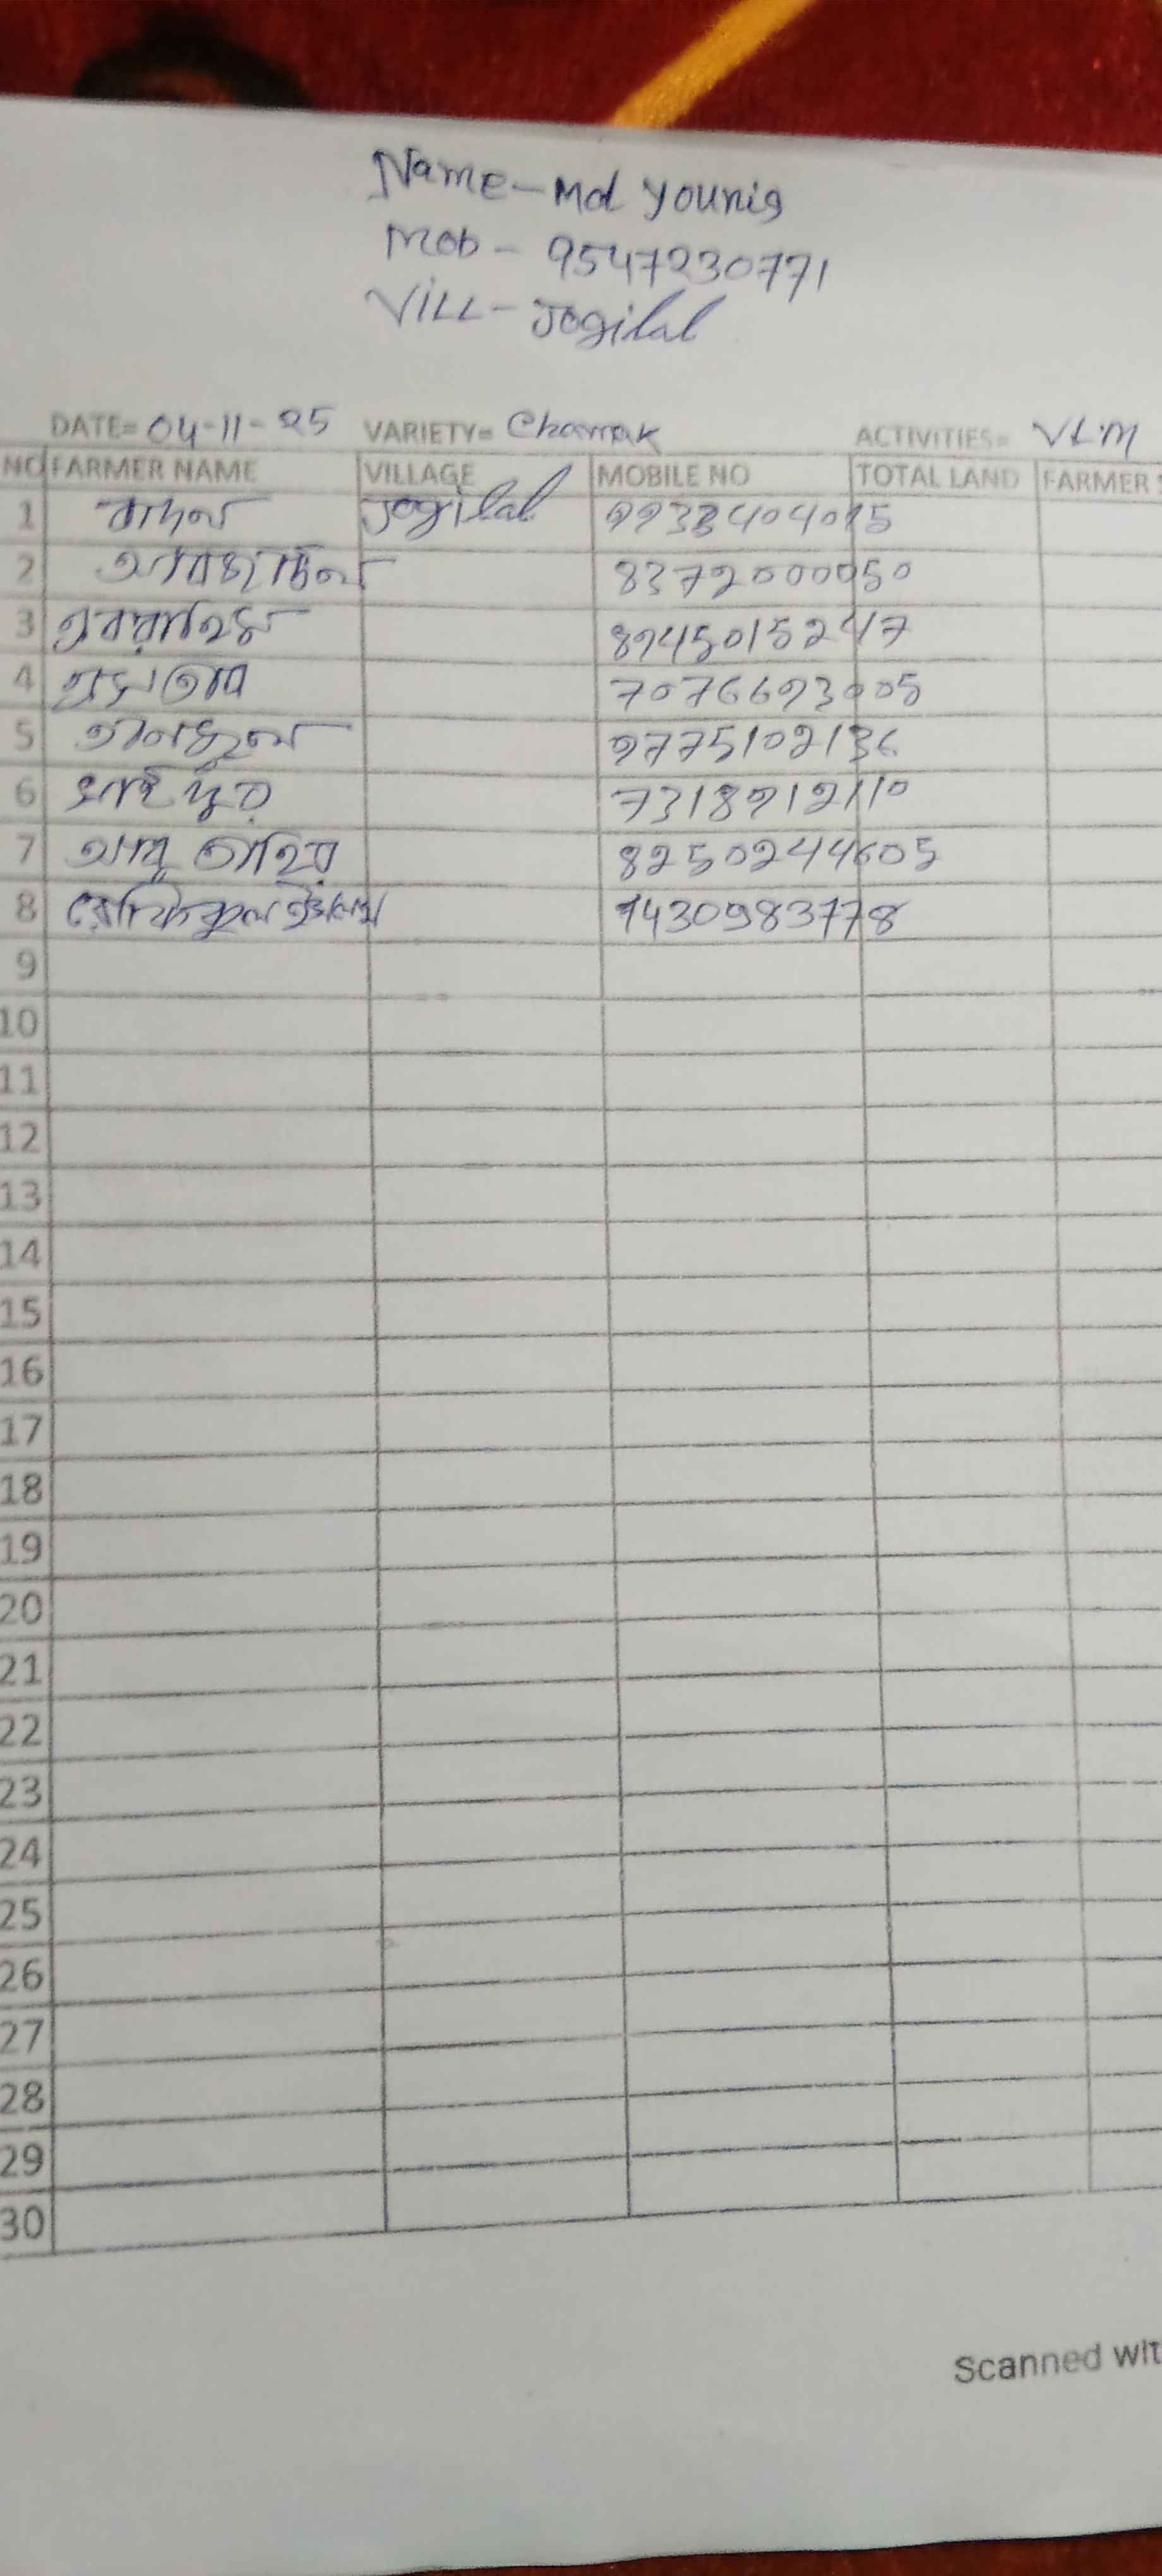 Name - Md Younis
Mob - 9547230771
Vill - Jogilal
DATE= 04-11-25 VARIETY= Chamak ACTIVITIES= VLM
NO FARMER NAME VILLAGE MOBILE NO TOTAL LAND FARMER
1 Jogilal 9933404015
2 8372000050
3 8945015247
4 7076693005
5 9775102136
6 সাইদুর 7318912110
7 আবু তাহির 8250244605
8 রফিকুল ইসলাম 9430983778
9
10
11
12
13
14
15
16
17
18
19
20
21
22
23
24
25
26
27
28
29
30
Scanned wit